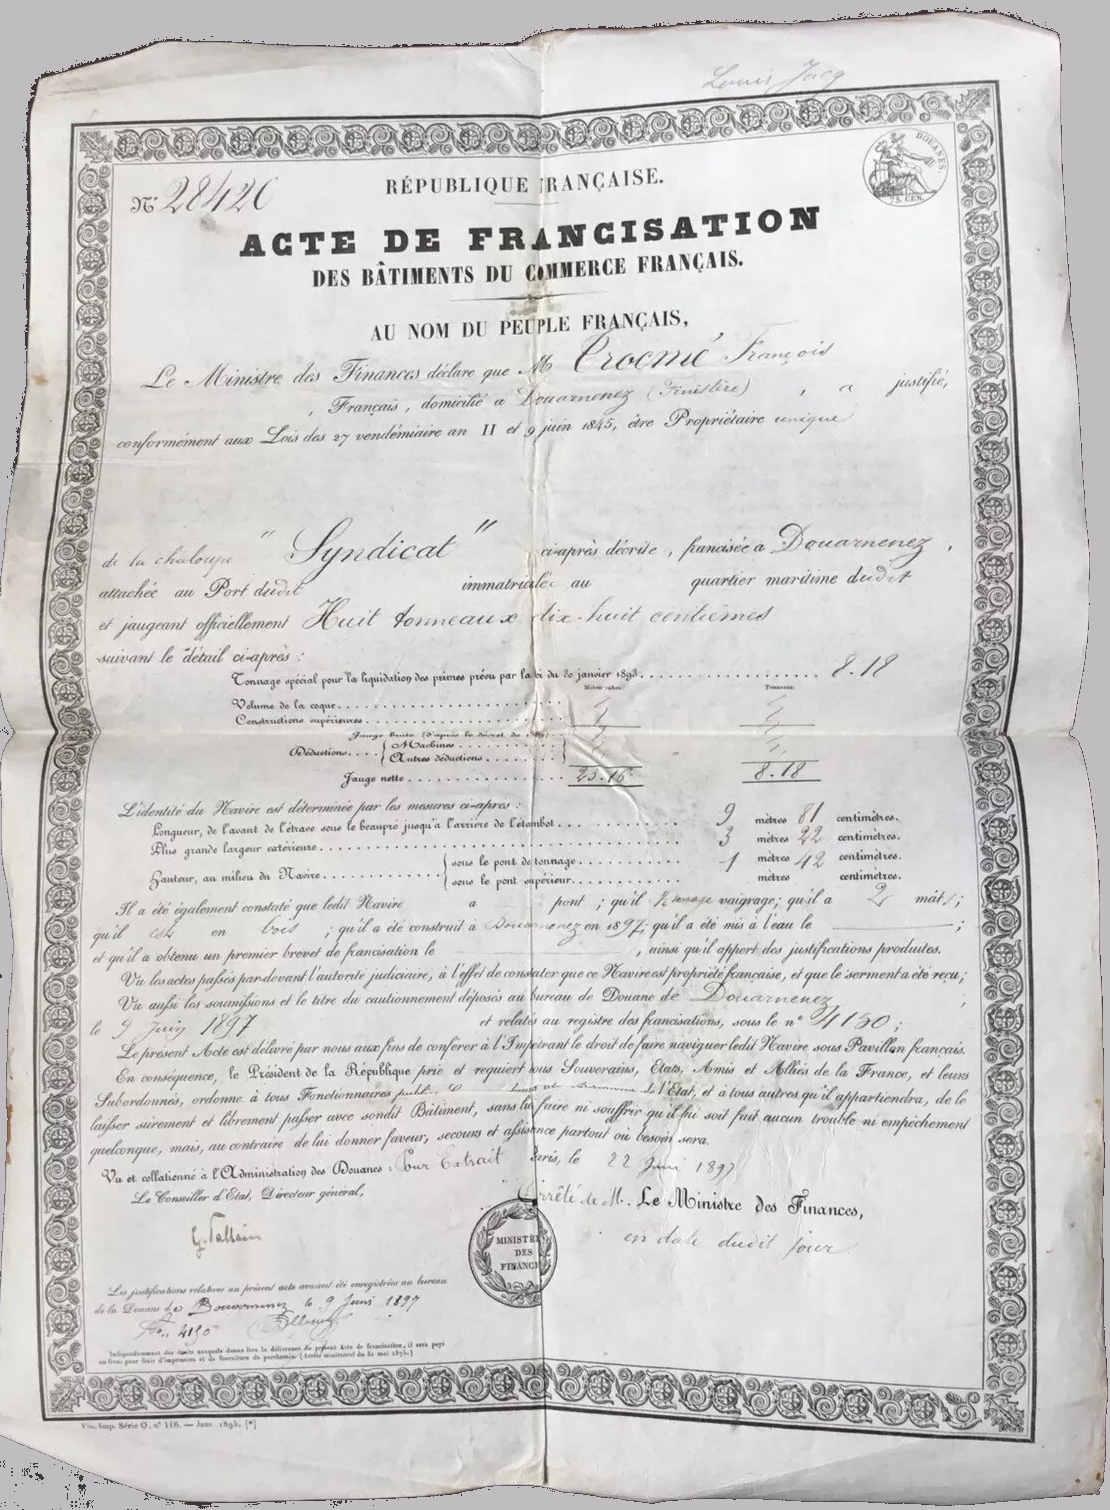 Louis Jacq
DOUANES.
75. CEN.
N° 28420
RÉPUBLIQUE FRANÇAISE.
ACTE DE FRANCISATION
DES BÂTIMENTS DU COMMERCE FRANÇAIS.
AU NOM DU PEUPLE FRANÇAIS,
Le Ministre des Finances déclare que M Crocmé François
, Français, domicilié à Douarnenez (Finistère) , a justifié,
conformément aux Lois des 27 vendémiaire an II et 9 juin 1845, être Propriétaire unique
de la chaloupe "Syndicat" ci-après décrite, francisée à Douarnenez,
attachée au Port dudit immatriculée au quartier maritime dudit
et jaugeant officiellement Huit tonneaux dix-huit centièmes
suivant le détail ci-après :
Tonnage spécial pour la liquidation des primes prévu par la loi du 30 janvier 1893. 8.18
Mètres cubes. Tonneaux.
Volume de la coque
Constructions supérieures
Jauge brute (d'après le décret de
Déductions { Machines
Autres déductions
Jauge nette 23.16 8.18
L'identité du Navire est déterminée par les mesures ci-après :
Longueur, de l'avant de l'étrave sous le beaupré jusqu'à l'arrière de l'étambot 9 mètres 81 centimètres.
Plus grande largeur extérieure 3 mètres 22 centimètres.
Hauteur, au milieu du Navire { sous le pont de tonnage 1 mètres 42 centimètres.
sous le pont supérieur mètres centimètres.
Il a été également constaté que ledit Navire a pont ; qu'il vaigrage ; qu'il a 2 mâts ;
qu'il est en bois ; qu'il a été construit à Douarnenez en 1897 ; qu'il a été mis à l'eau le ;
et qu'il a obtenu un premier brevet de francisation le , ainsi qu'il appert des justifications produites.
Vu les actes passés par-devant l'autorité judiciaire, à l'effet de constater que ce Navire est propriété française, et que le serment a été reçu ;
Vu aussi les soumissions et le titre du cautionnement déposés au bureau de Douane de Douarnenez ,
le 9 Juin 1897 et relatés au registre des francisations, sous le n°
Le présent Acte est délivré par nous aux fins de conférer à l'Impétrant le droit de faire naviguer ledit Navire sous Pavillon français.
En conséquence, le Président de la République prie et requiert tous Souverains, États, Amis et Alliés de la France, et leurs
Subordonnés, ordonne à tous Fonctionnaires publics de l'État, et à tous autres qu'il appartiendra, de le
laisser sûrement et librement passer avec sondit Bâtiment, sans lui faire ni souffrir qu'il lui soit fait aucun trouble ni empêchement
quelconque, mais, au contraire de lui donner faveur, secours et assistance partout où besoin sera.
Vu et collationné à l'Administration des Douanes : Pour Extrait Paris, le 22 Juin 1897
Le Conseiller d'État, Directeur général,
Arrêté de M. Le Ministre des Finances,
en date dudit jour
G. Pallain
MINISTÈRE
DES
FINANCES
Les justifications relatives au présent acte avaient été enregistrées au bureau
de la Douane de Douarnenez le 9 Juin 1897
Indépendamment des droits auxquels donne lieu la délivrance du présent Acte de francisation, il sera payé
un franc pour frais d'impression et de fourniture du parchemin. (Arrêté ministériel du 31 mai 1873.)
Vin. Imp. Série O, n° 116. — Janv. 1895. [*]